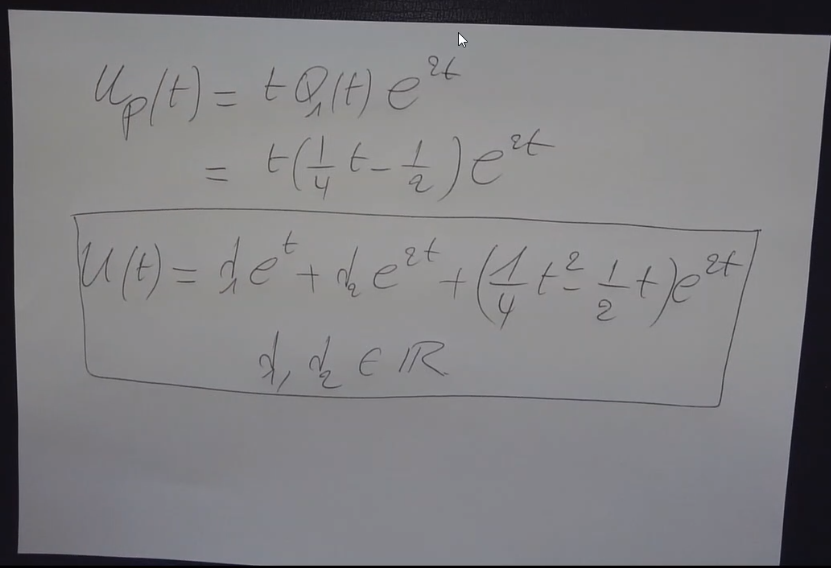 u_p(t) = t Q_1(t) e^{2t}
= t(\frac{1}{4} t - \frac{1}{2}) e^{2t}
U(t) = λ_1 e^t + λ_2 e^{2t} + (\frac{1}{4} t^2 - \frac{1}{2} t) e^{2t}
λ_1, λ_2 ∈ ℝ